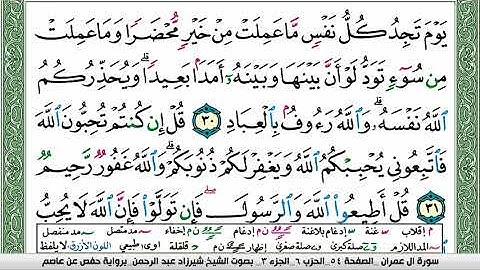 يَوْمَ تَجِدُ كُلُّ نَفْسٍ مَّا عَمِلَتْ مِنْ خَيْرٍ مُّحْضَرًا وَمَا عَمِلَتْ
مِن سُوٓءٍ تَوَدُّ لَوْ أَنَّ بَيْنَهَا وَبَيْنَهُۥٓ أَمَدًۢا بَعِيدًا ۗ وَيُحَذِّرُكُمُ
ٱللَّهُ نَفْسَهُۥ ۗ وَٱللَّهُ رَءُوفٌۢ بِٱلْعِبَادِ ٣٠ قُلْ إِن كُنتُمْ تُحِبُّونَ ٱللَّهَ
فَٱتَّبِعُونِى يُحْبِبْكُمُ ٱللَّهُ وَيَغْفِرْ لَكُمْ ذُنُوبَكُمْ ۗ وَٱللَّهُ غَفُورٌ رَّحِيمٌ
٣١ قُلْ أَطِيعُوا۟ ٱللَّهَ وَٱلرَّسُولَ ۖ فَإِن تَوَلَّوْا۟ فَإِنَّ ٱللَّهَ لَا يُحِبُّ
م إقلاب غنة إدغام بلاغنة إدغام إخفاء مد متصل مد منفصل
المد اللازم صلة كبرى صلة صغرى إظهار قلقلة أوى طبيعي اللون الأزرق لا يلفظ
سورة ال عمران الصفحة ٥٤ الحزب ٦ الجزء ٣ بصوت الشيخ شيرزاد عبد الرحمن برواية حفص عن عاصم